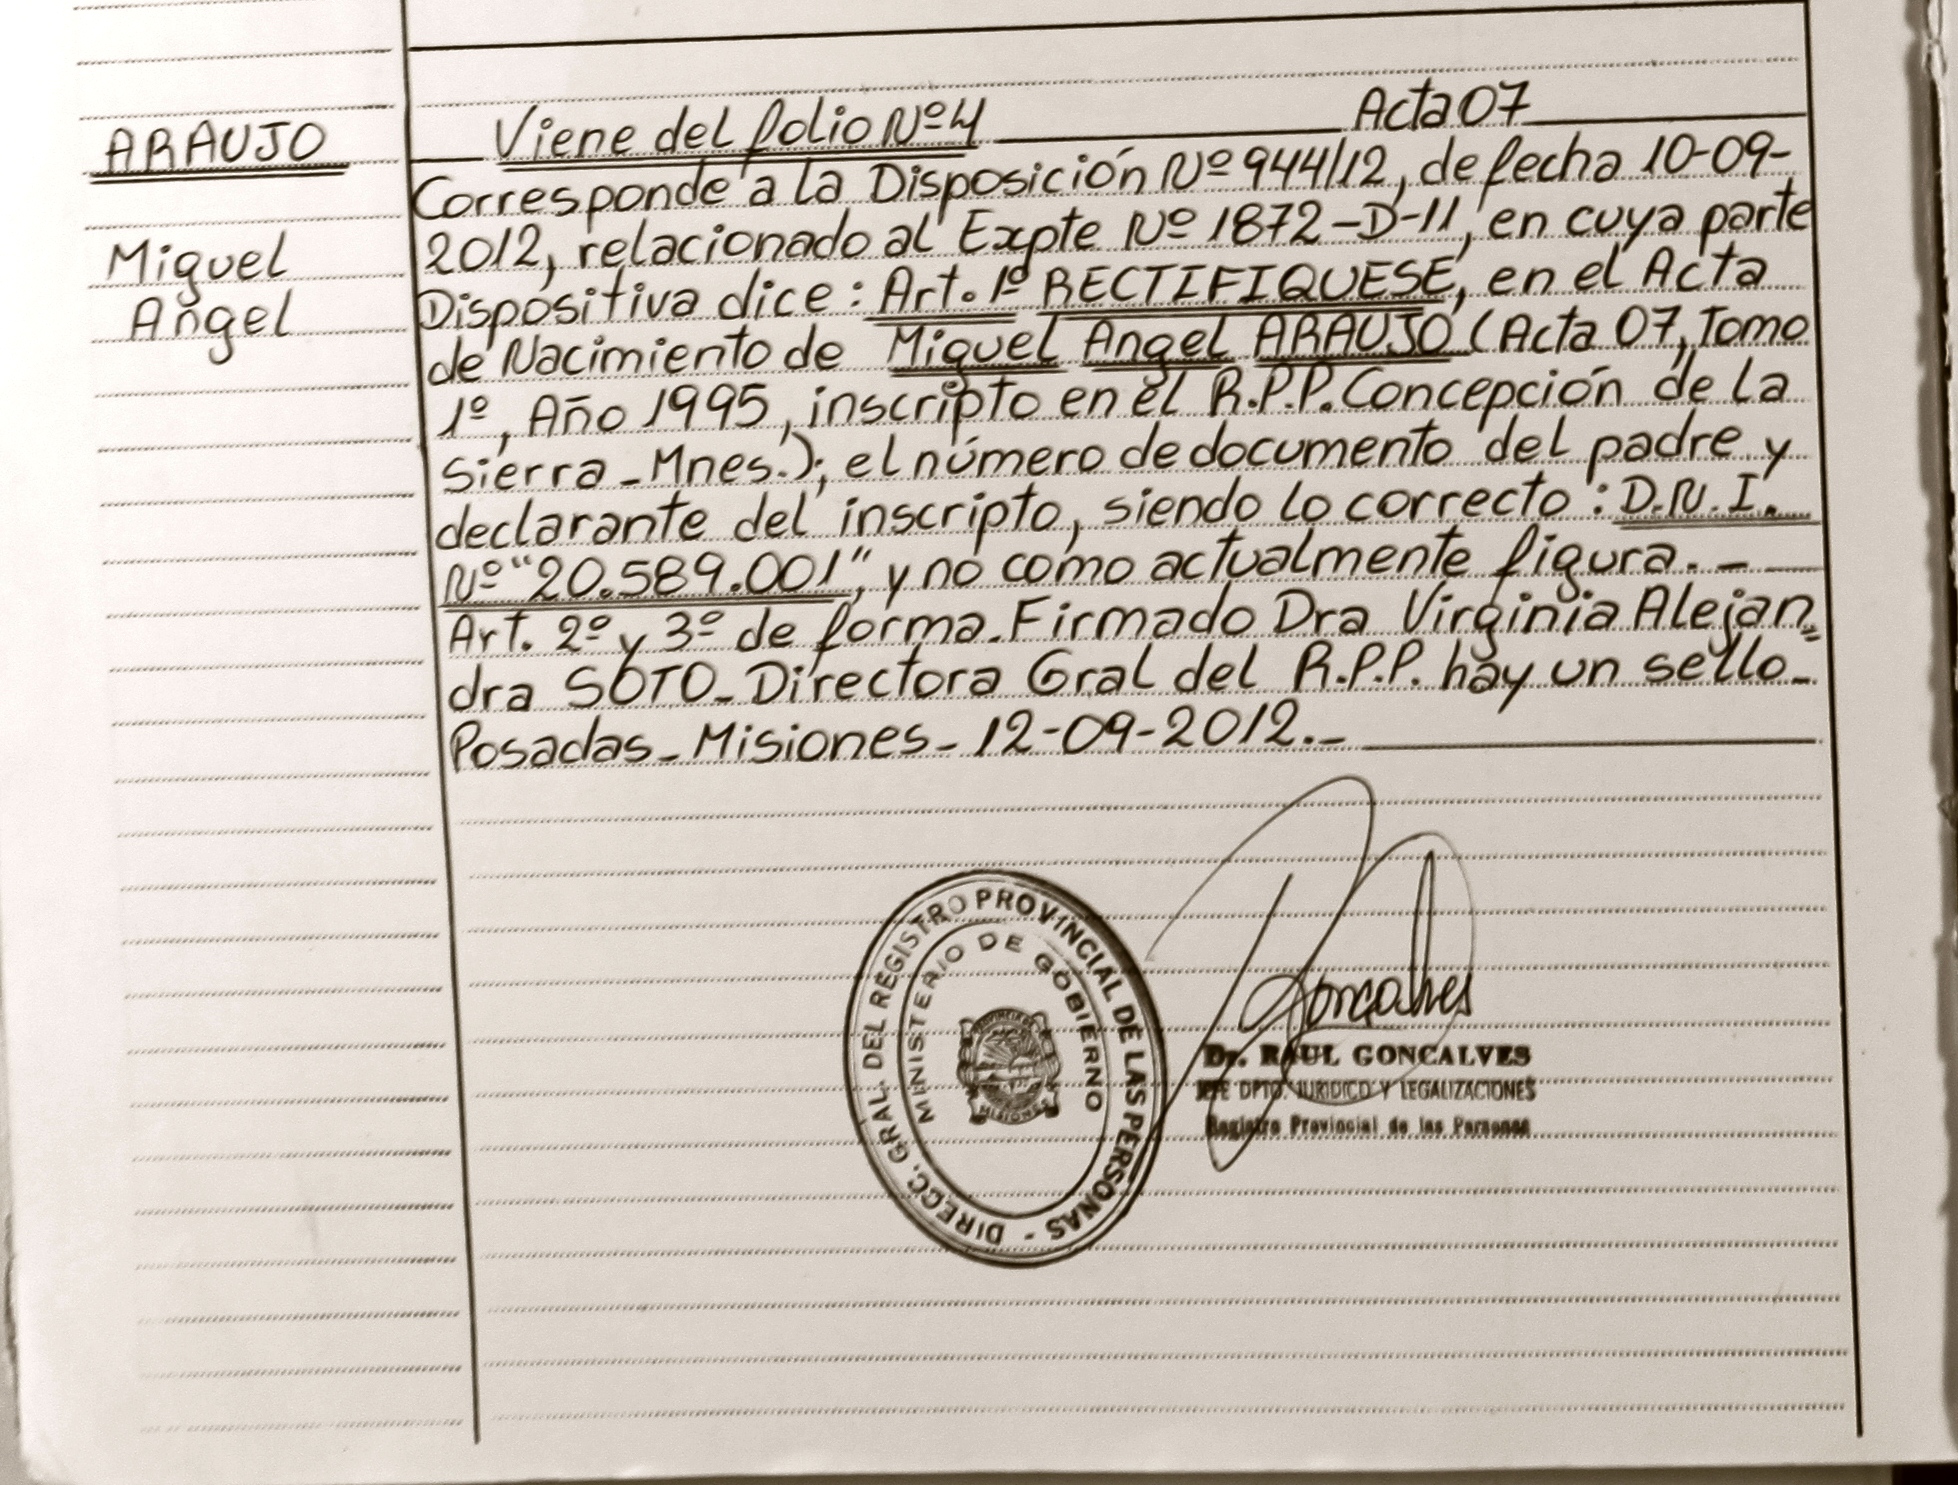 ARAUJO
Miguel
Angel
Viene del folio Nº4 Acta 07
Corresponde a la Disposición Nº 944/12, de fecha 10-09-
2012, relacionado al Expte Nº 1872-D-11, en cuya parte
Dispositiva dice: Art. 1º RECTIFIQUESE, en el Acta
de Nacimiento de Miguel Angel ARAUJO (Acta 07, Tomo
1º, Año 1995, inscripto en el R.P.P. Concepción de la
Sierra - Mnes.); el número de documento del padre y
declarante del inscripto, siendo lo correcto: D.N.I.
Nº "20.589.001", y no como actualmente figura. -
Art. 2º y 3º de forma. Firmado Dra Virginia Alejan=
dra SOTO - Directora Gral del R.P.P. hay un sello -
Posadas - Misiones - 12-09-2012. -
DIRECC. GRAL. DEL REGISTRO PROVINCIAL DE LAS PERSONAS -
MINISTERIO DE GOBIERNO
PROVINCIA DE
MISIONES
Goncalves
Dr. RAUL GONCALVES
JEFE DPTO. JURIDICO Y LEGALIZACIONES
Registro Provincial de las Personas